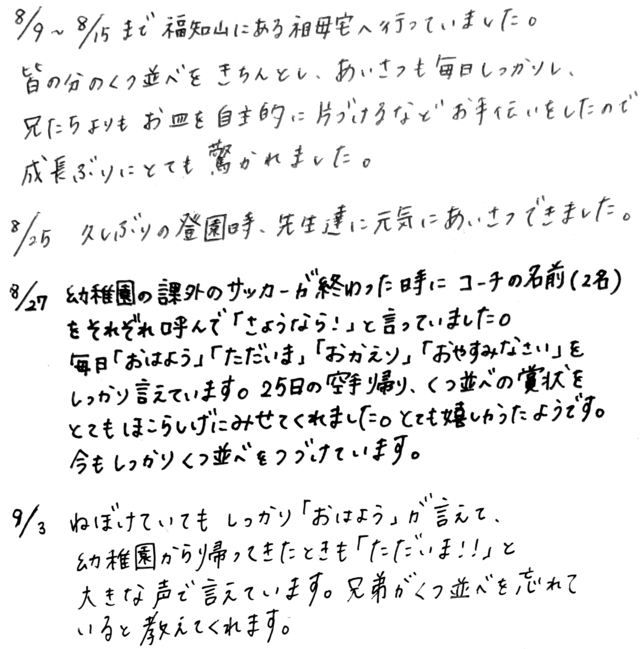 8/9～8/15まで福知山にある祖母宅へ行っていました。
皆の分のくつ並べをきちんとし、あいさつも毎日しっかりし、
兄たちよりもお皿を自主的に片づけるなどお手伝いをしたので
成長ぶりにとても驚かれました。
8/25 久しぶりの登園時、先生達に元気にあいさつできました。
8/27 幼稚園の課外のサッカーが終わった時にコーチの名前(2名)
をそれぞれ呼んで「さようなら!」と言っていました。
毎日「おはよう」「ただいま」「おかえり」「おやすみなさい」を
しっかり言えています。25日の空手帰り、くつ並べの賞状を
とてもほこらしげにみせてくれました。とても嬉しかったようです。
今もしっかりくつ並べをつづけています。
9/3 ねぼけていてもしっかり「おはよう」が言えて、
幼稚園から帰ってきたときも「ただいま!!」と
大きな声で言えています。兄弟がくつ並べを忘れて
いると教えてくれます。